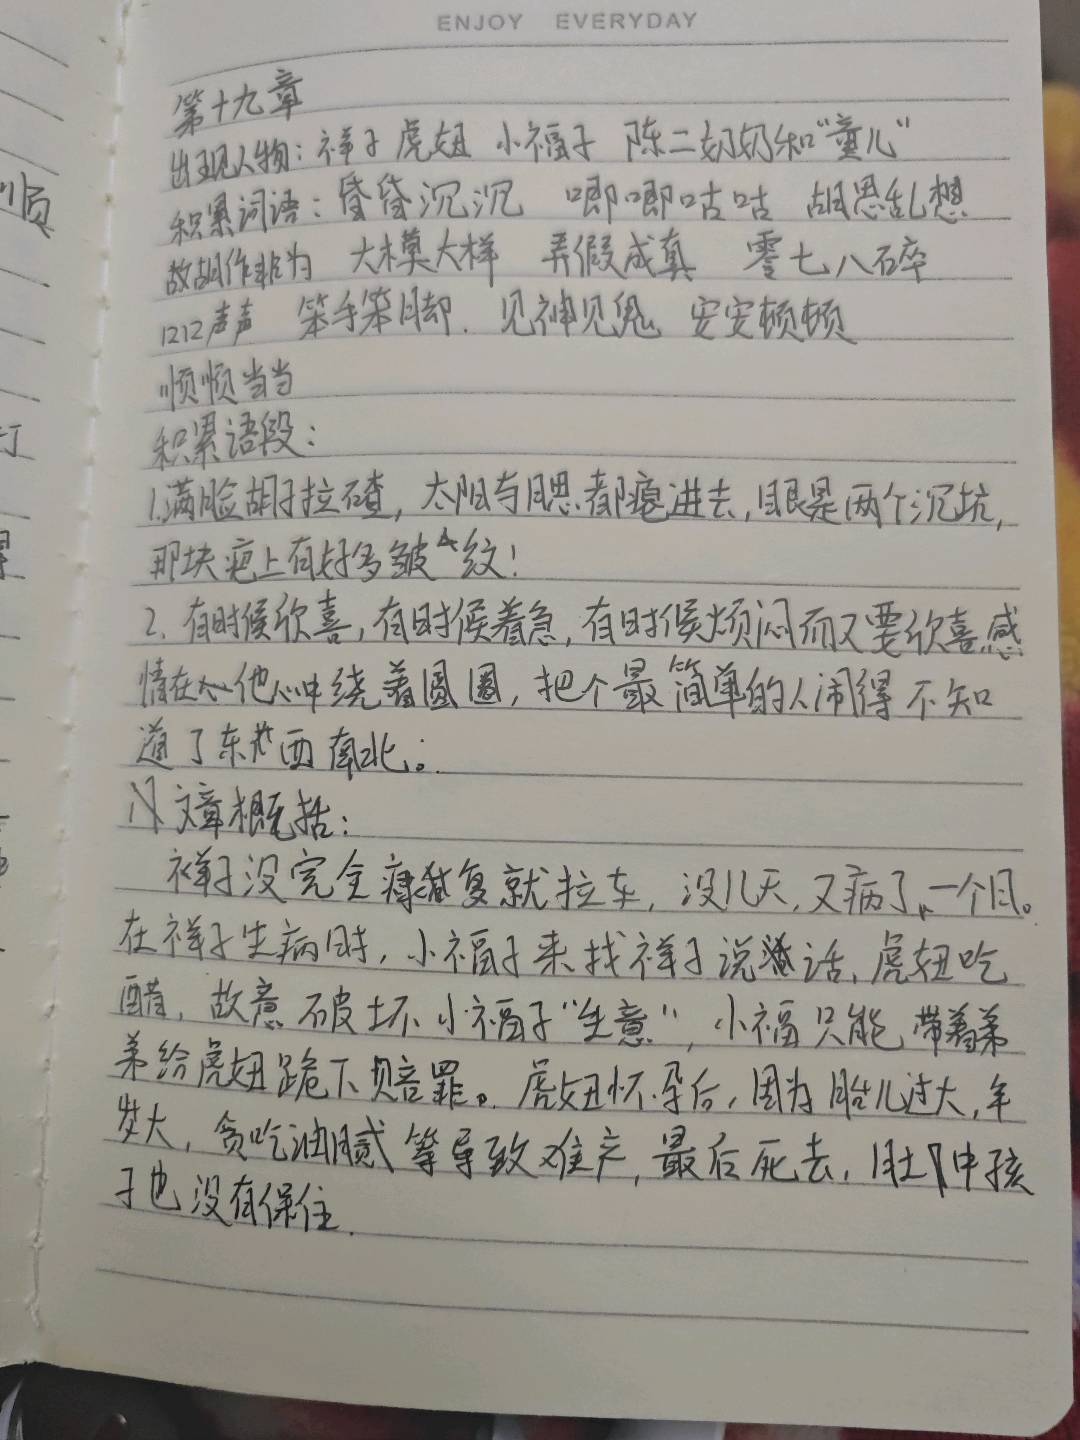 ENJOY EVERYDAY
第十九章
出现人物：祥子 虎妞 小福子 陈二奶奶和"童儿"
积累词语：昏昏沉沉 唧唧咕咕 胡思乱想
故胡作非为 大模大样 弄假成真 零七八碎
口口声声 笨手笨脚. 见神见鬼 安安顿顿
顺顺当当
积累语段：
1.满脸胡子拉碴，太阳与腮都瘪进去，眼是两个沉坑，
那块疤上有好多皱纹！
2. 有时候欣喜，有时候着急，有时候烦闷而又要欣喜感
情在他心中绕着圆圈，把个最简单的人闹得不知
道了东西南北。
文章概括：
祥子没完全康复就拉车，没几天，又病了，一个月。
在祥子生病时，小福子来找祥子说话，虎妞吃
醋，故意破坏小福子"生意"，小福只能带着弟
弟给虎妞跪下赔罪。虎妞怀孕后，因为胎儿过大，年
岁大，贪吃油腻等导致难产，最后死去，肚中孩
子也没有保住.
顺
打